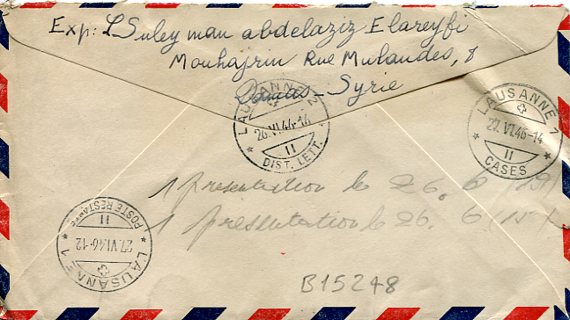 Exp: Suleyman abdelaziz Elareyfi
Mouhajrin Rue Mulaudes, 8
Damas - Syrie
LAUSANNE 2
26.VI.46-14
11
* DIST. LETT.
LAUSANNE 1
27.VI.46-14
11
* CASES *
1 presentation le 26. 6
1 presentation le 26. 6
POSTE RESTANTE
11
27.VI.46-12
* LAUSANNE 1 *
B15248